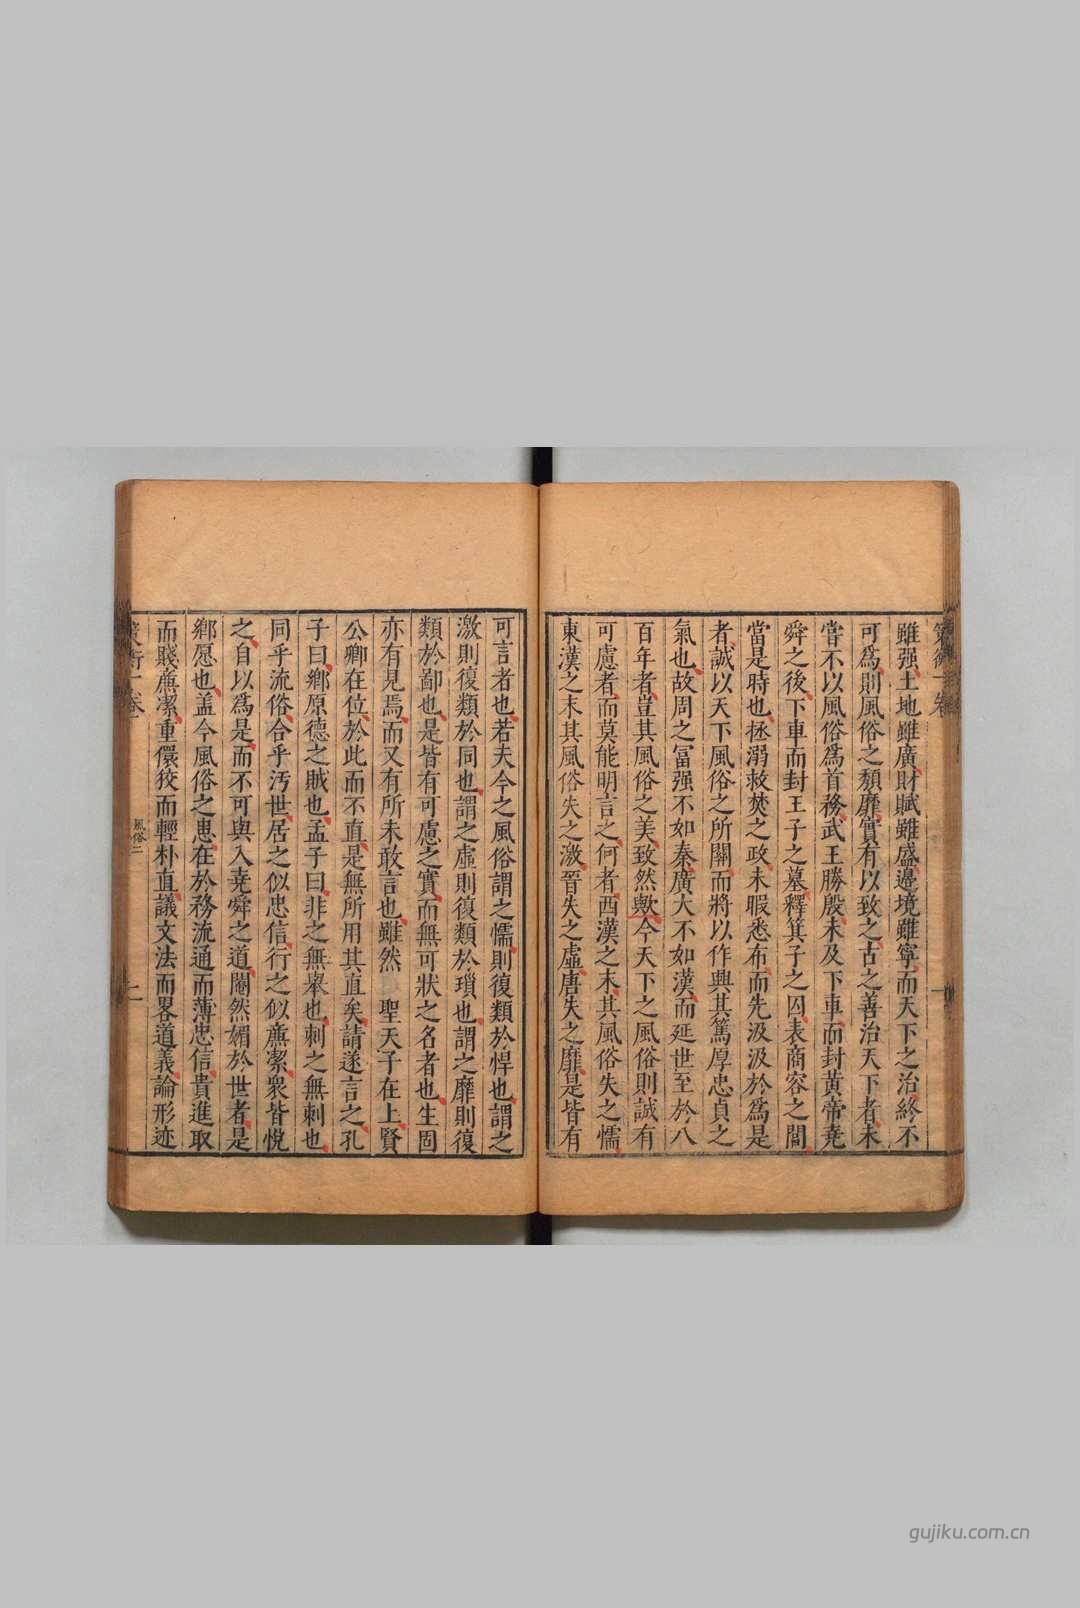 雖强土地雖廣財賦雖盛邊境雖寧而天下之治終不
可爲則風俗之頽靡實有以致之古之善治天下者未
嘗不以風俗爲首務武王勝殷未及下車而封黃帝堯
舜之後下車而封王子之墓釋箕子之囚表商容之閭
當是時也拯溺救焚之政未暇悉布而先汲汲於爲是
者誠以天下風俗之所關而將以作興其篤厚忠貞之
氣也故周之冨强不如秦廣大不如漢而延世至於八
百年者豈其風俗之美致然歟今天下之風俗則誠有
可慮者而莫能明言之何者西漢之末其風俗失之懦
東漢之末其風俗失之激晉失之虛唐失之靡是皆有
可言者也若夫今之風俗謂之懦則復類於悍也謂之
激則復類於同也謂之虛則復類於瑣也謂之靡則復
類於鄙也是皆有可慮之實而無可狀之名者也生固
亦有見焉而又有所未敢言也雖然 聖天子在上賢
公卿在位於此而不直是無所用其直矣請遂言之孔
子曰鄉原德之賊也孟子曰非之無舉也刺之無刺也
同乎流俗合乎汚世居之似忠信行之似廉潔衆皆悅
之自以爲是而不可與入堯舜之道閹然媚於世者是
鄉愿也盖今風俗之患在於務流通而薄忠信貴進取
而賤廉潔重儇狡而輕朴直議文法而畧道義論形迹
風俗二
二
gujiku.com.cn